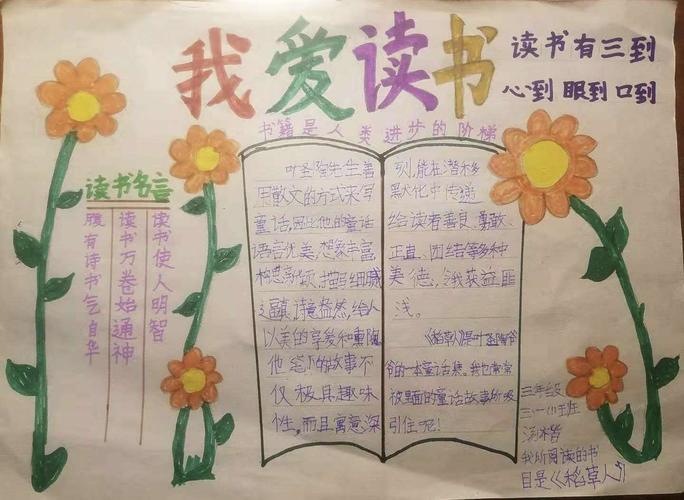 我爱读书
读书有三到
心到 眼到 口到
书籍是人类进步的阶梯
读书名言
读书使人明智
读书万卷始通神
腹有诗书气自华
叶圣陶先生善
用散文的方式来写
童话,因此他的童话
语言优美,想象丰富
构思新颖,描写细腻
逼真,诗意盎然,给人
以美的享受和熏陶
他笔下的故事不
仅极具趣味
性,而且寓意深
刻,能在潜移
默化中传递
给读者善良、勇敢、
正直、团结等多种
美德,我获益匪
浅。
《稻草人》是叶圣陶爷
爷的一本童话集。我也常常
被里面的童话故事所吸
引住呢!
三年级
班
我所阅读的书
目是《稻草人》